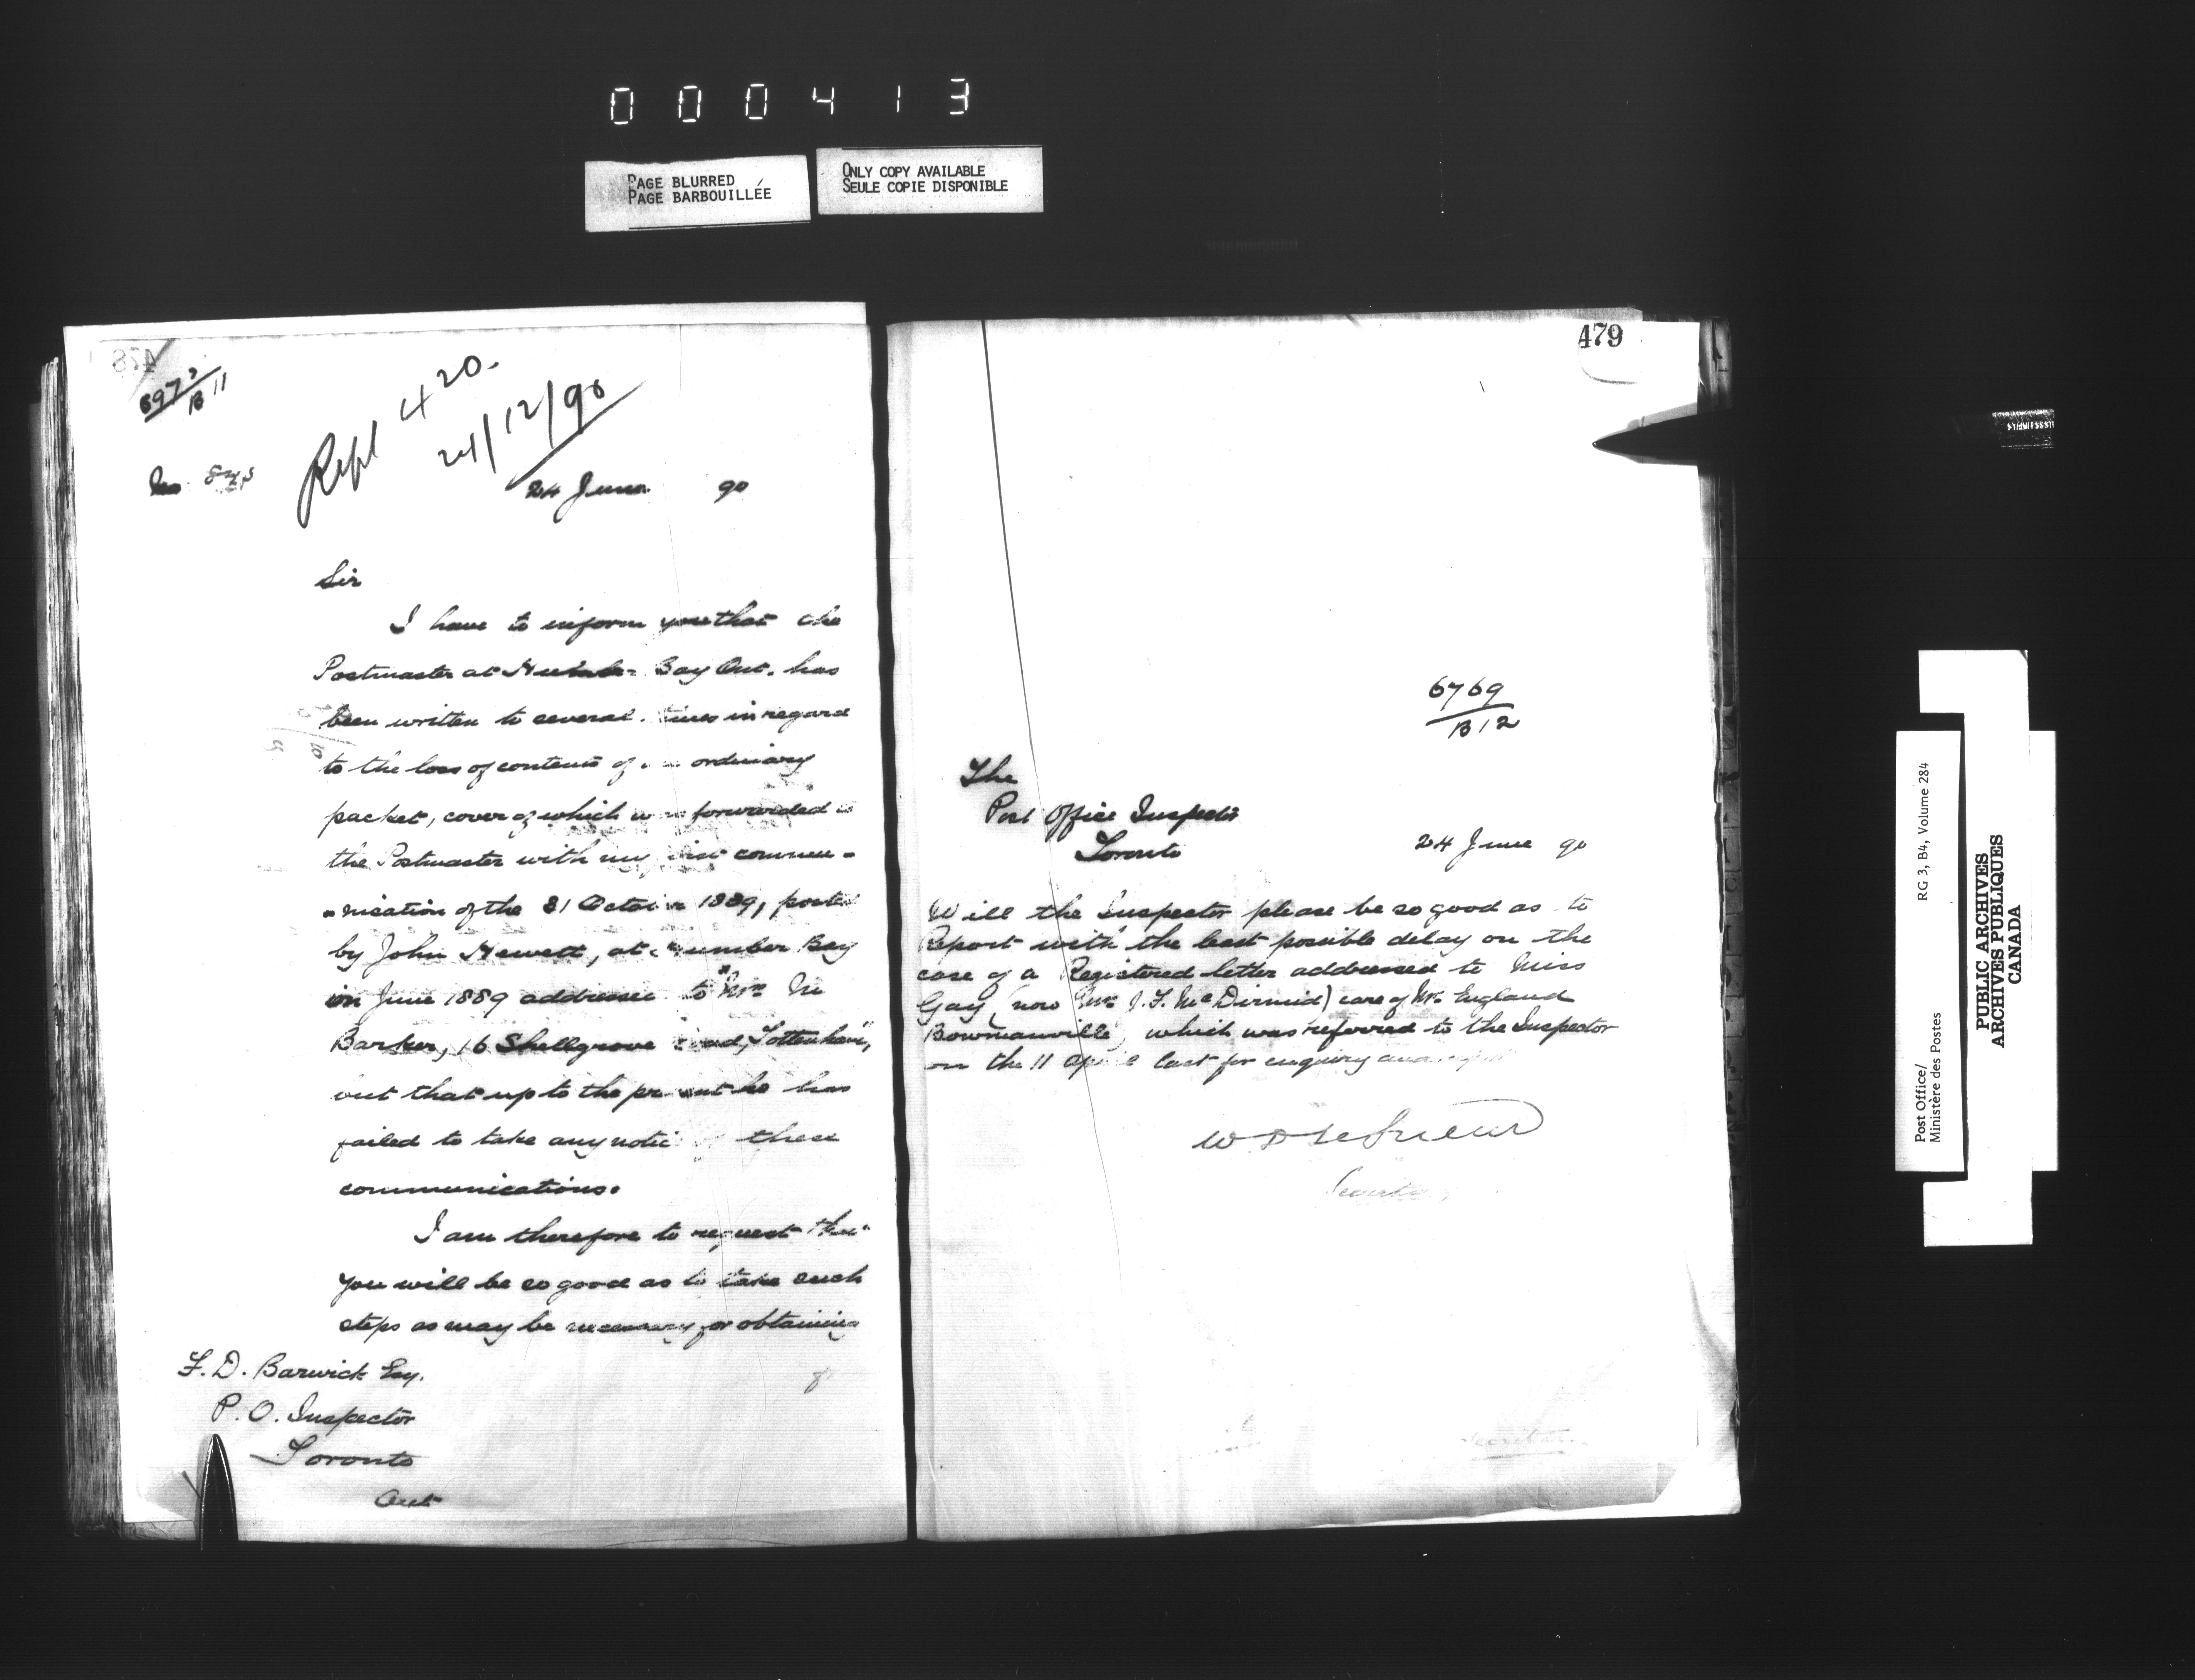 000413
PAGE BLURRED
PAGE BARBOUILLÉE
ONLY COPY AVAILABLE
SEULE COPIE DISPONIBLE
478
B 11
Repl 420.
24/12/90
No
24 June 90
Sir
I have to inform you that the
Postmaster at Humber Bay Ont. has
been written to several times in regard
to the loss of contents of an ordinary
packet, cover of which was forwarded to
the Postmaster with my first commu-
-nication of the 31 October 1889, posted
by John Hewett, at Humber Bay
in June 1889 addressed to "Mrs M
Barker, 16 Shellgrove Road, Tottenham",
but that up to the present he has
failed to take any notice of these
communications.
I am therefore to request that
you will be so good as to take such
steps as may be necessary for obtaining
F. D. Barwick Esq.
P. O. Inspector
Toronto
Ont
479
6769
B 12
The
Post Office Inspector
Toronto
24 June 90
Will the Inspector please be so good as to
Report with the least possible delay on the
case of a Registered letter addressed to Miss
Gay (now Mrs J. F. McDirmid) care of Mr. England
Bowmanville, which was referred to the Inspector
on the 11 April last for enquiry and report
W D LeSueur
Secretary
Post Office/
Ministère des Postes
RG 3, B4, Volume 284
PUBLIC ARCHIVES
ARCHIVES PUBLIQUES
CANADA